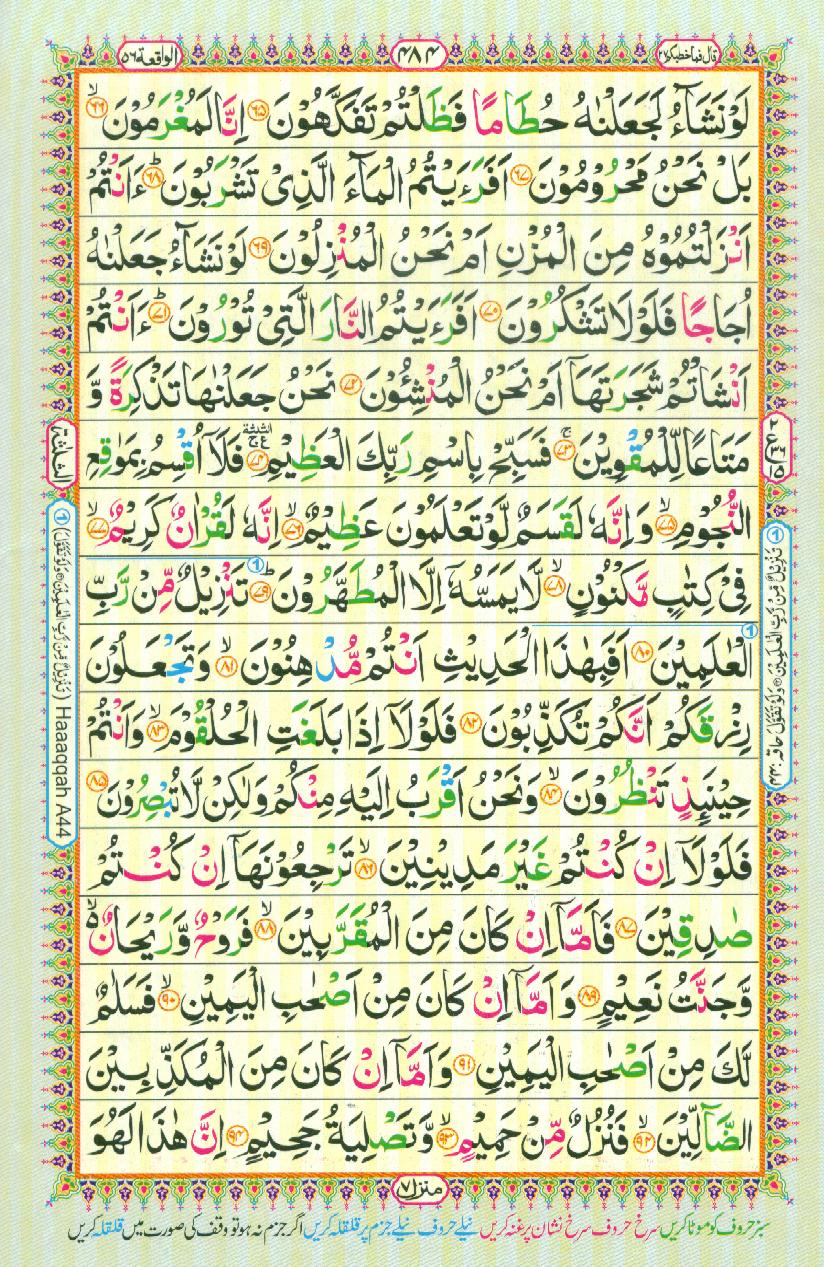 قال فما خطبكم ۲۷
۴۸۴
الواقعة ۵۶
لَوْ نَشَآءُ لَجَعَلْنٰهُ حُطَامًا فَظَلْتُمْ تَفَكَّهُوْنَ ﴿۶۵﴾ اِنَّا لَمُغْرَمُوْنَ ﴿۶۶﴾ۙ
بَلْ نَحْنُ مَحْرُوْمُوْنَ ﴿۶۷﴾ اَفَرَءَيْتُمُ الْمَآءَ الَّذِيْ تَشْرَبُوْنَ ﴿۶۸﴾ؕ ءَاَنْتُمْ
اَنْزَلْتُمُوْهُ مِنَ الْمُزْنِ اَمْ نَحْنُ الْمُنْزِلُوْنَ ﴿۶۹﴾ لَوْ نَشَآءُ جَعَلْنٰهُ
اُجَاجًا فَلَوْلَا تَشْكُرُوْنَ ﴿۷۰﴾ اَفَرَءَيْتُمُ النَّارَ الَّتِيْ تُوْرُوْنَ ﴿۷۱﴾ؕ ءَاَنْتُمْ
اَنْشَاْتُمْ شَجَرَتَهَآ اَمْ نَحْنُ الْمُنْشِـُٔوْنَ ﴿۷۲﴾ نَحْنُ جَعَلْنٰهَا تَذْكِرَةً وَّ
مَتَاعًا لِّلْمُقْوِيْنَ ﴿۷۳﴾ۚ فَسَبِّحْ بِاسْمِ رَبِّكَ الْعَظِيْمِ ﴿۷۴﴾ فَلَآ اُقْسِمُ بِمَوٰقِعِ
النُّجُوْمِ ﴿۷۵﴾ۙ وَاِنَّهٗ لَقَسَمٌ لَّوْ تَعْلَمُوْنَ عَظِيْمٌ ﴿۷۶﴾ۙ اِنَّهٗ لَقُرْاٰنٌ كَرِيْمٌ ﴿۷۷﴾ۙ
فِيْ كِتٰبٍ مَّكْنُوْنٍ ﴿۷۸﴾ۙ لَّا يَمَسُّهٗٓ اِلَّا الْمُطَهَّرُوْنَ ﴿۷۹﴾ؕ تَنْزِيْلٌ مِّنْ رَّبِّ
الْعٰلَمِيْنَ ﴿۸۰﴾ اَفَبِهٰذَا الْحَدِيْثِ اَنْتُمْ مُّدْهِنُوْنَ ﴿۸۱﴾ۙ وَتَجْعَلُوْنَ
رِزْقَكُمْ اَنَّكُمْ تُكَذِّبُوْنَ ﴿۸۲﴾ فَلَوْلَآ اِذَا بَلَغَتِ الْحُلْقُوْمَ ﴿۸۳﴾ۙ وَاَنْتُمْ
حِيْنَئِذٍ تَنْظُرُوْنَ ﴿۸۴﴾ۙ وَنَحْنُ اَقْرَبُ اِلَيْهِ مِنْكُمْ وَلٰكِنْ لَّا تُبْصِرُوْنَ ﴿۸۵﴾
فَلَوْلَآ اِنْ كُنْتُمْ غَيْرَ مَدِيْنِيْنَ ﴿۸۶﴾ۙ تَرْجِعُوْنَهَآ اِنْ كُنْتُمْ
صٰدِقِيْنَ ﴿۸۷﴾ فَاَمَّآ اِنْ كَانَ مِنَ الْمُقَرَّبِيْنَ ﴿۸۸﴾ۙ فَرَوْحٌ وَّرَيْحَانٌ ۙ۬
وَّجَنَّتُ نَعِيْمٍ ﴿۸۹﴾ وَاَمَّآ اِنْ كَانَ مِنْ اَصْحٰبِ الْيَمِيْنِ ﴿۹۰﴾ۙ فَسَلٰمٌ
لَّكَ مِنْ اَصْحٰبِ الْيَمِيْنِ ﴿۹۱﴾ وَاَمَّآ اِنْ كَانَ مِنَ الْمُكَذِّبِيْنَ
الضَّآلِّيْنَ ﴿۹۲﴾ۙ فَنُزُلٌ مِّنْ حَمِيْمٍ ﴿۹۳﴾ۙ وَّتَصْلِيَةُ جَحِيْمٍ ﴿۹۴﴾ اِنَّ هٰذَا لَهُوَ
منزل ۷
سبز حروف کو موٹا کریں سرخ حروف سرخ نشان پر غنہ کریں نیلے حروف نیلے جزم پر قلقلہ کریں اگر جزم نہ ہو تو وقف کی صورت میں قلقلہ کریں
① تَنْزِيْلٌ مِّنْ رَّبِّ الْعٰلَمِيْنَ وَلَوْ تَقَوَّلَ حاقه: ۴۳
الثلثة
① (تَنْزِيْلٌ مِّنْ رَّبِّ الْعٰلَمِيْنَ وَلَوْ تَقَوَّلَ) Haaaqqah A44